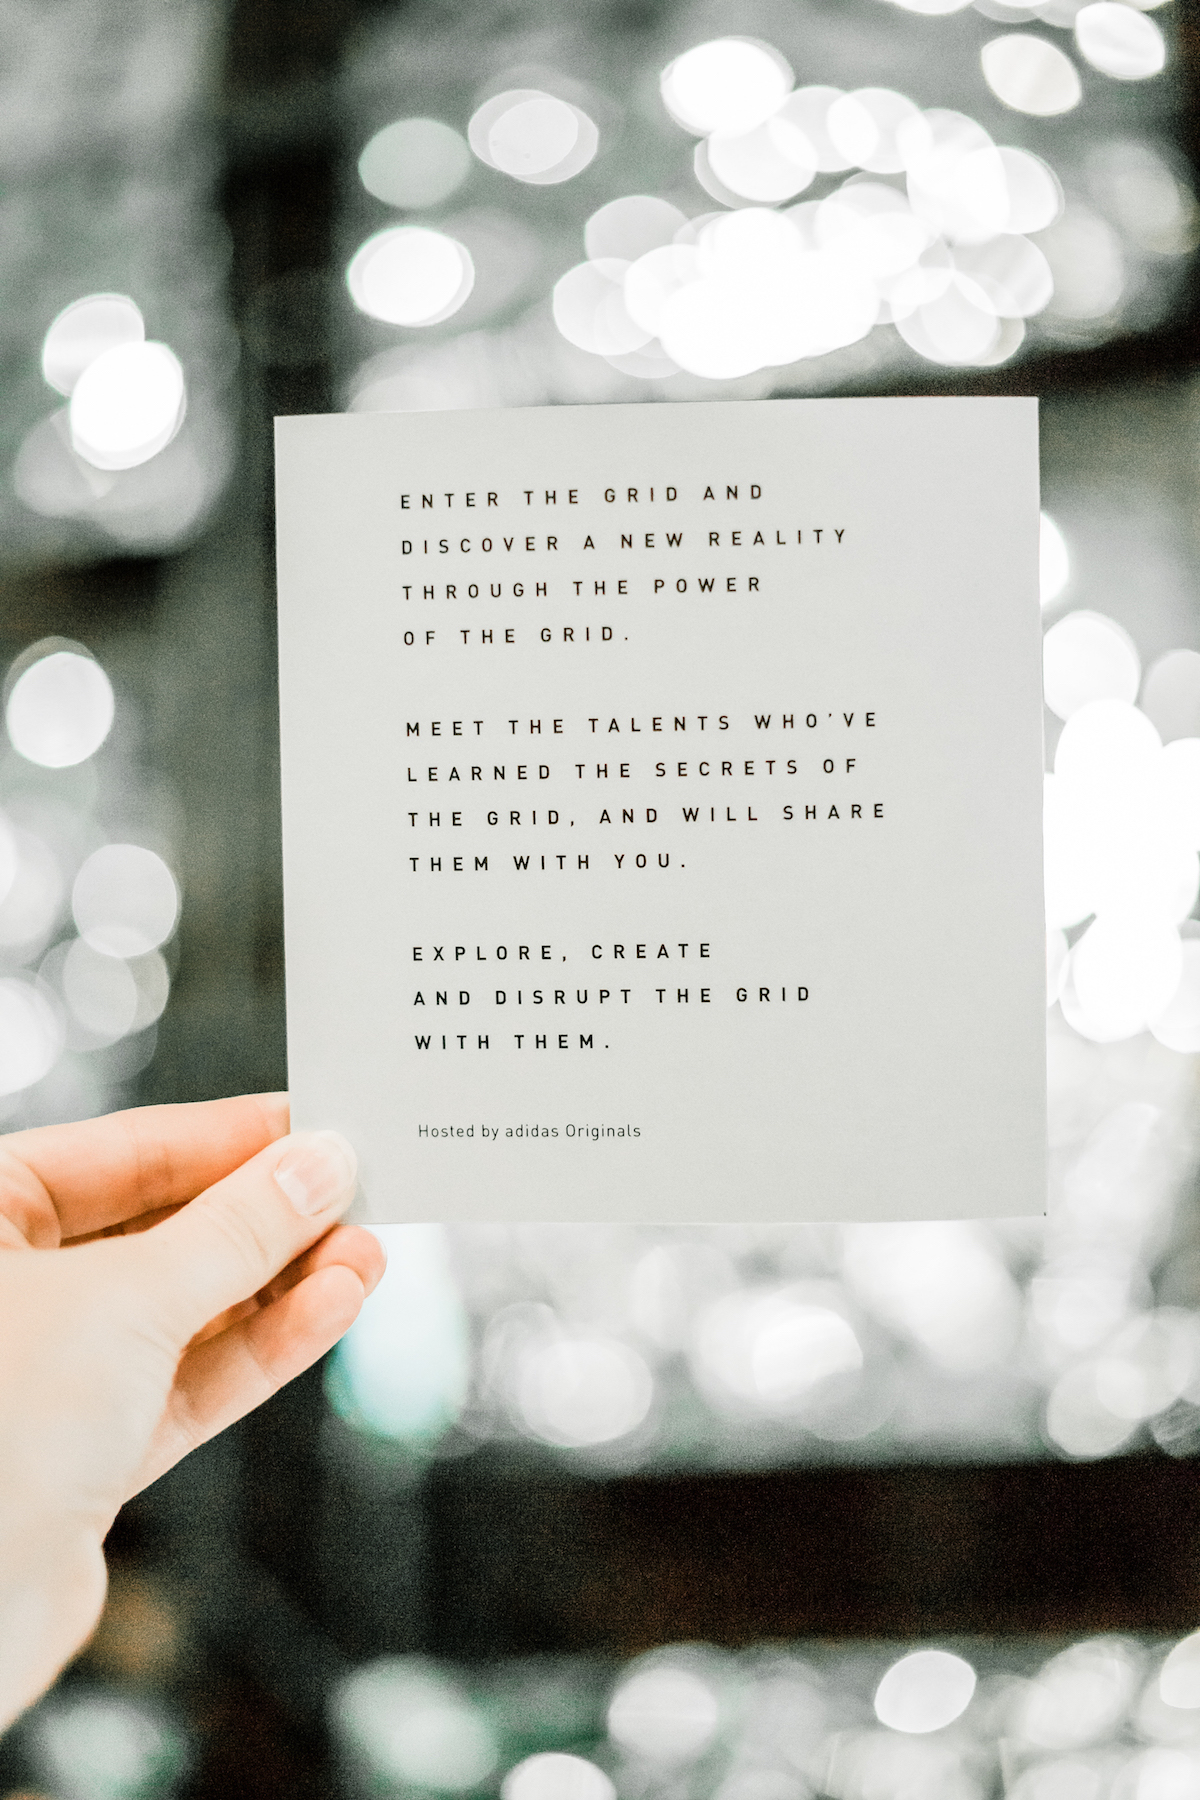 ENTER THE GRID AND
DISCOVER A NEW REALITY
THROUGH THE POWER
OF THE GRID.
MEET THE TALENTS WHO'VE
LEARNED THE SECRETS OF
THE GRID, AND WILL SHARE
THEM WITH YOU.
EXPLORE, CREATE
AND DISRUPT THE GRID
WITH THEM.
Hosted by adidas Originals